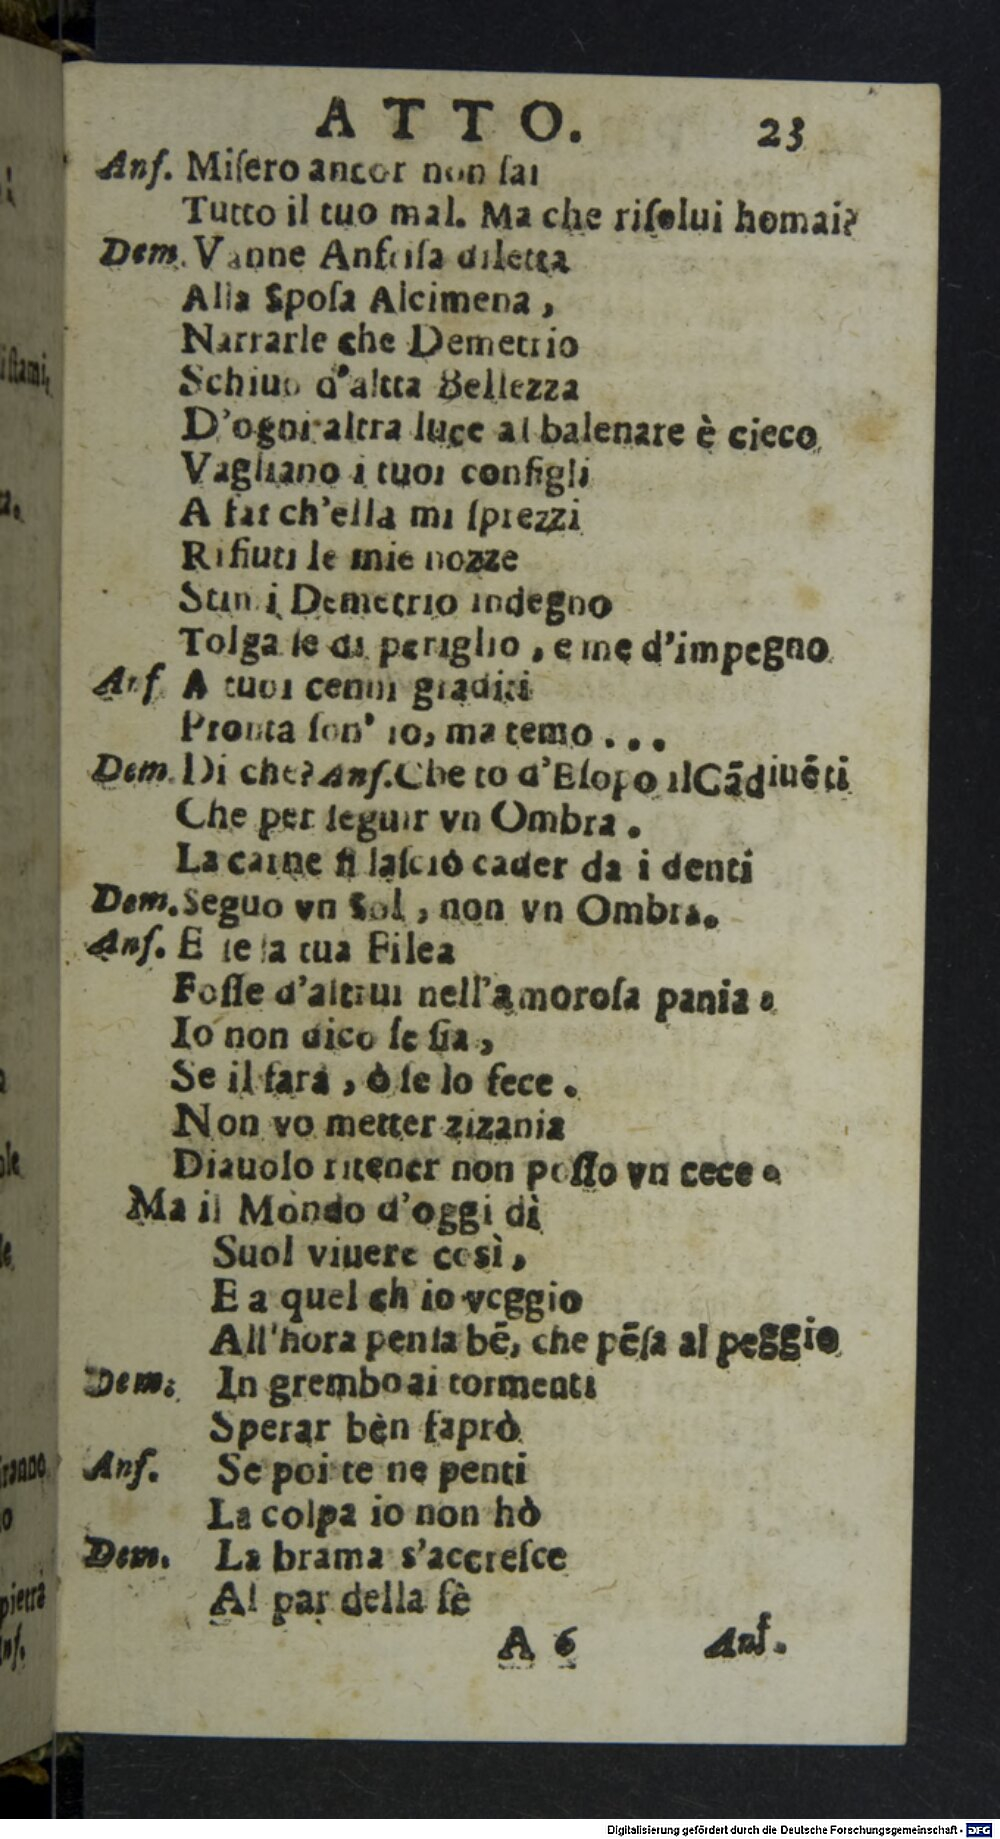 ATTO. 23
Anf. Miſero ancor non ſai
Tutto il tuo mal. Ma che riſolui homai?
Dem. Vanne Anfriſa diletta
Alla Spoſa Alcimena,
Narrarle che Demetrio
Schiuo d'altta Bellezza
D'ogni altra luce al balenare è cieco
Vagliano i tuoi conſigli
A far ch'ella mi ſprezzi
Rifiuti le mie nozze
Stimi Demetrio indegno
Tolga ſe di periglio, e me d'impegno
Anf. A tuoi cenni graditi
Pronta ſon' io, ma temo...
Dem. Di che? Anf. Che to d'Eſopo il Cādiuēti
Che per ſeguir vn Ombra.
La carne ſi laſciò cader da i denti
Dem. Seguo vn Sol, non vn Ombra.
Anf. E ſe la tua Filea
Foſſe d'altrui nell'amoroſa pania.
Io non dico ſe ſia,
Se il ſarà, ò ſe lo fece.
Non vo metter zizania
Diauolo ritener non poſſo vn cece.
Ma il Mondo d'oggi dì
Suol viuere così,
E a quel ch io veggio
All'hora penſa bē, che pēſa al peggio
Dem. In grembo ai tormenti
Sperar bèn ſaprò
Anf. Se poi te ne penti
La colpa io non hò
Dem. La brama s'accreſce
Al par della fè
A 6 Anf.
iſtami,
ranno
pietrà
Anf.
Digitalisierung gefördert durch die Deutsche Forschungsgemeinschaft - DFG